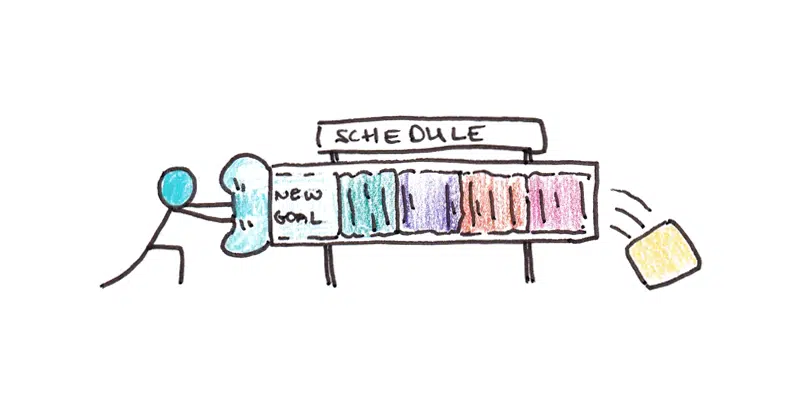 SCHEDULE
NEW
GOAL